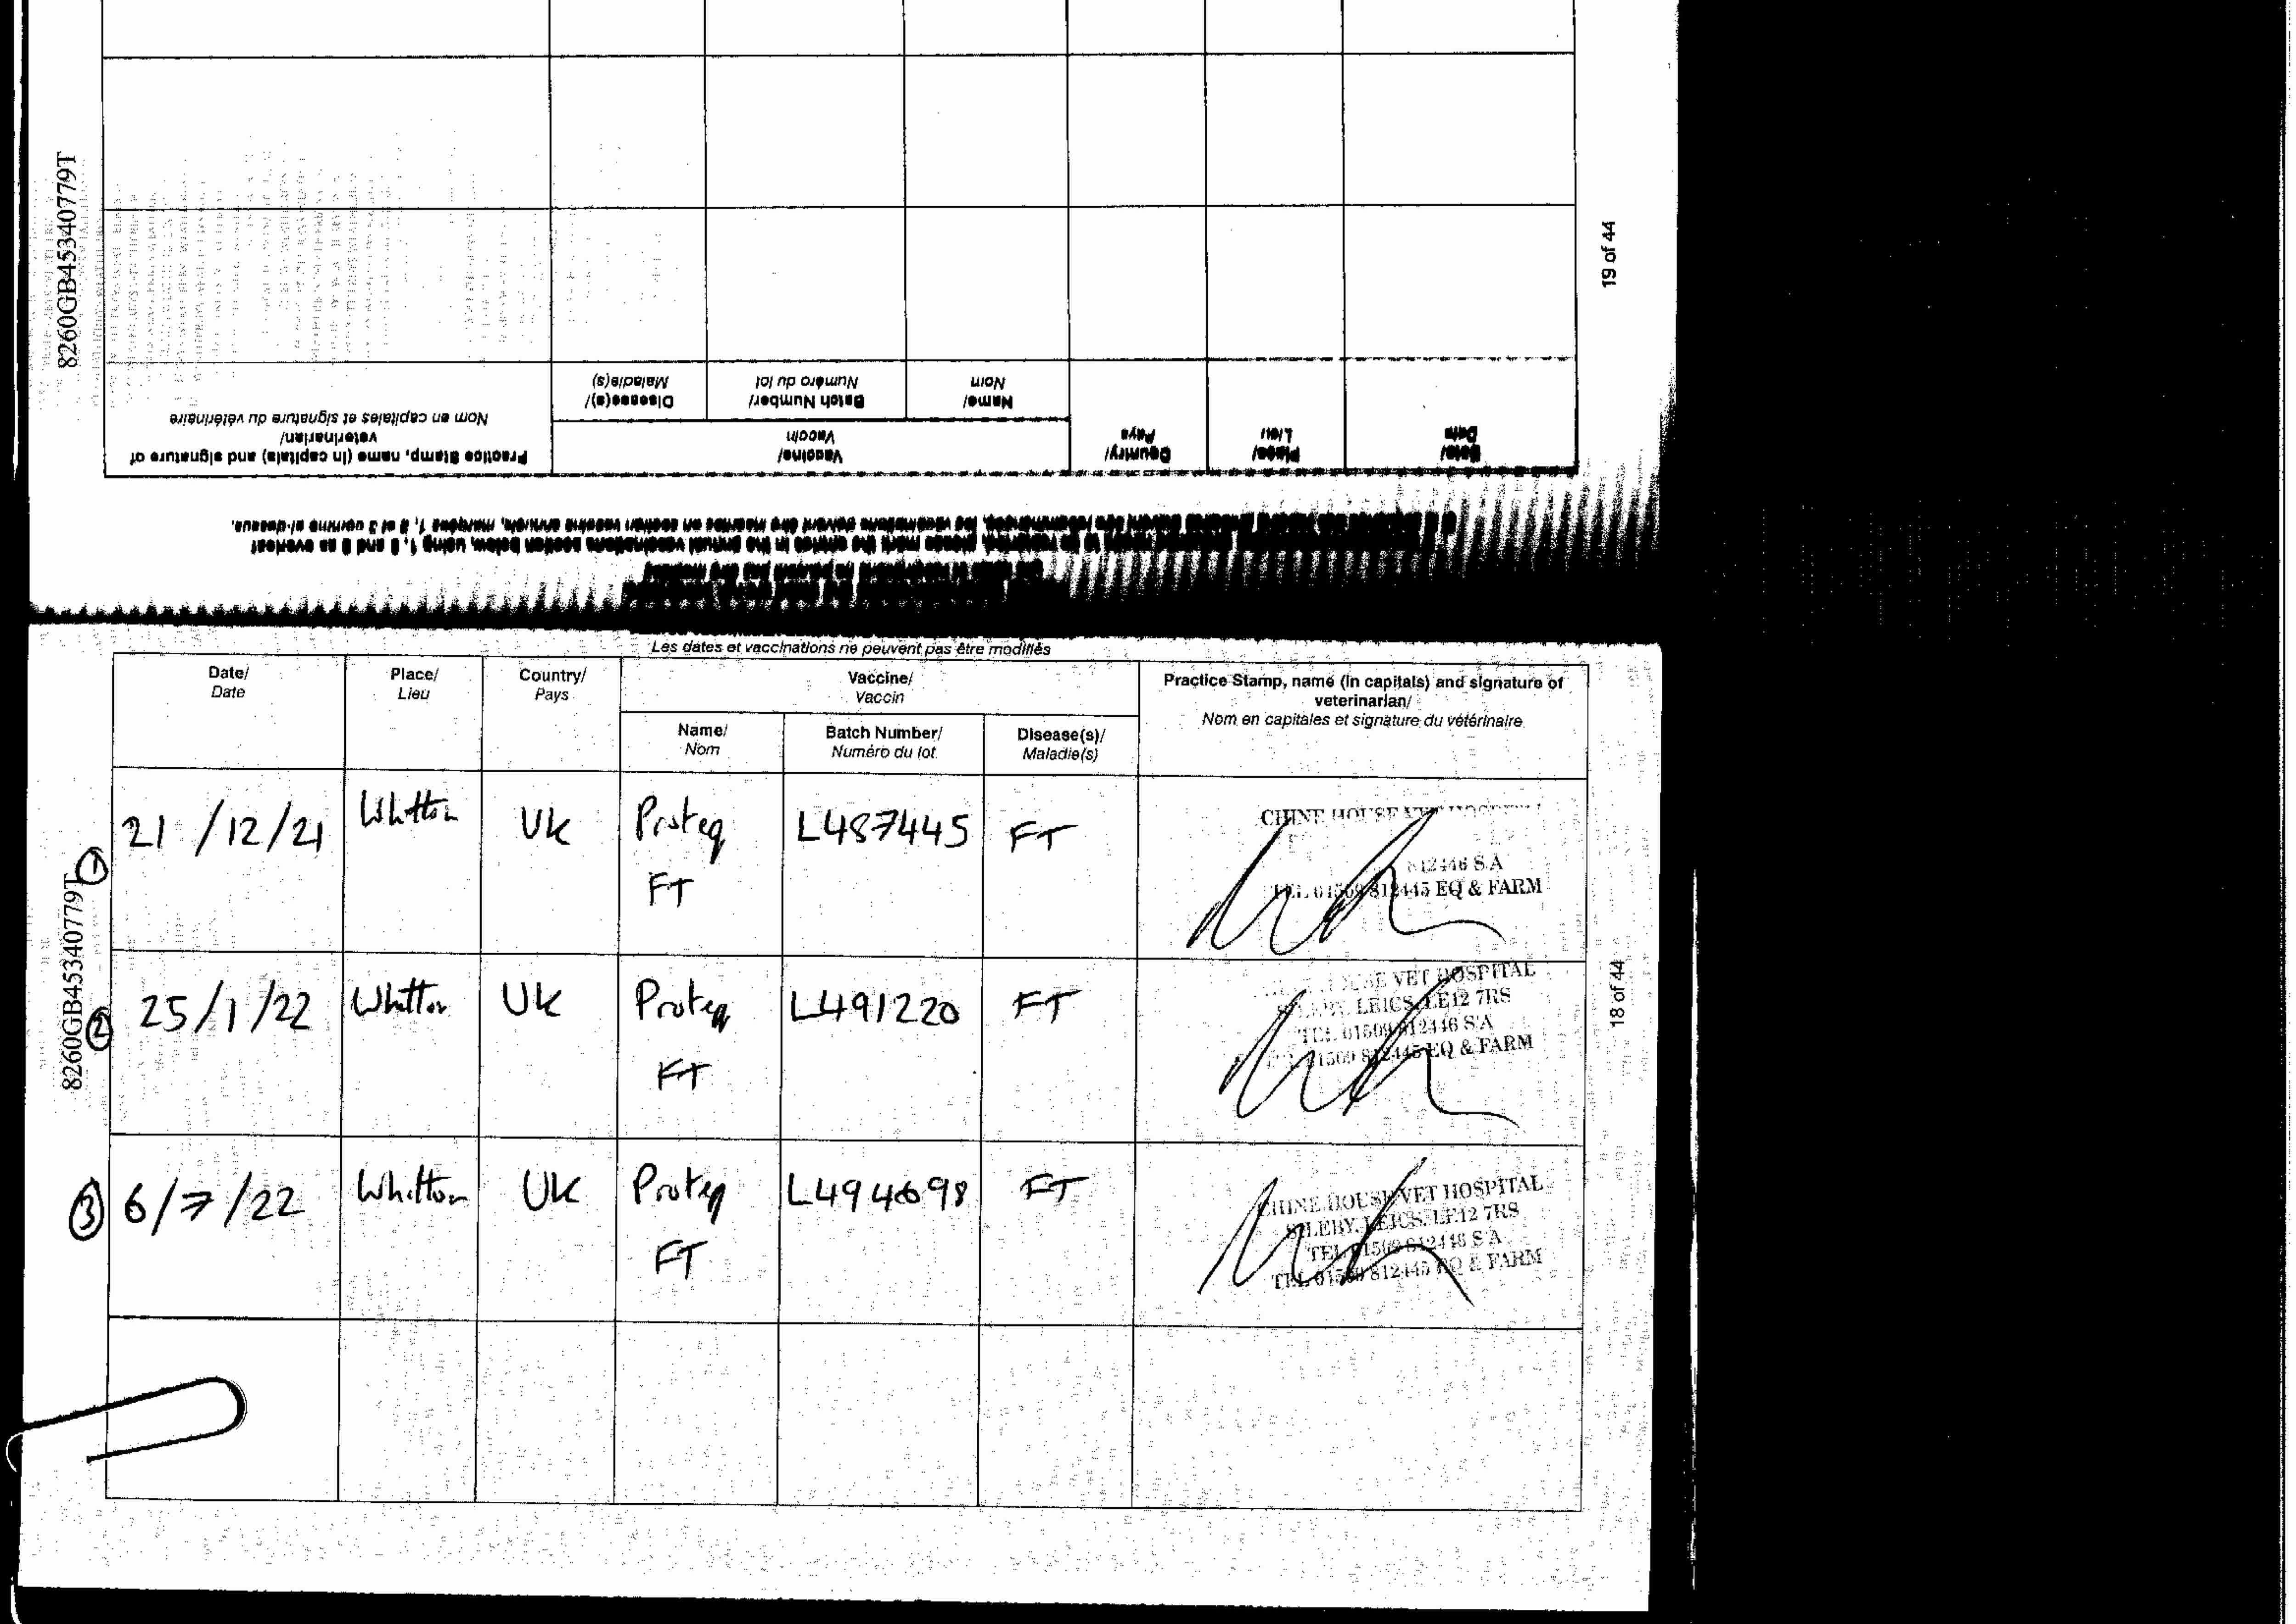 8260GB45340779T
19 of 44
Disease(s)/
Maladie(s)
Batch Number/
Numéro du lot
Name/
Nom
Practice Stamp, name (in capitals) and signature of
veterinarian/
Nom en capitales et signature du vétérinaire
Vaccine/
Vaccin
Country/
Pays
Place/
Lieu
Date/
Date
please mark the entries in the annual vaccinations section below, using 1, 2 and 3 as overleaf
les vaccinations doivent être inscrites en section vaccins annuels, marquées 1, 2 et 3 comme al-dessus.
Les dates et vaccinations ne peuvent pas être modifiés
Date/
Date
Place/
Lieu
Country/
Pays
Vaccine/
Vaccin
Practice Stamp, name (in capitals) and signature of
veterinarian/
Nom en capitales et signature du vétérinaire
Name/
Nom
Batch Number/
Numéro du lot
Disease(s)/
Maladie(s)
1 21/12/21 Whitton UK Proteq L487445 FT
FT
CHINE HOUSE VET HOSPITAL
812446 S.A
TEL 01509 812445 EQ & FARM
2 25/1/22 Whitton UK Proteq L491220 FT
FT
HOUSE VET HOSPITAL
SILEBY, LEICS. LE12 7RS
TEL 01509 812446 S.A
01509 812445 EQ & FARM
3 6/7/22 Whitton UK Proteq L494698 FT
FT
CHINE HOUSE VET HOSPITAL
SILEBY, LEICS. LE12 7RS
TEL 01509 812446 S.A
TEL 01509 812445 EQ & FARM
8260GB45340779T
18 of 44